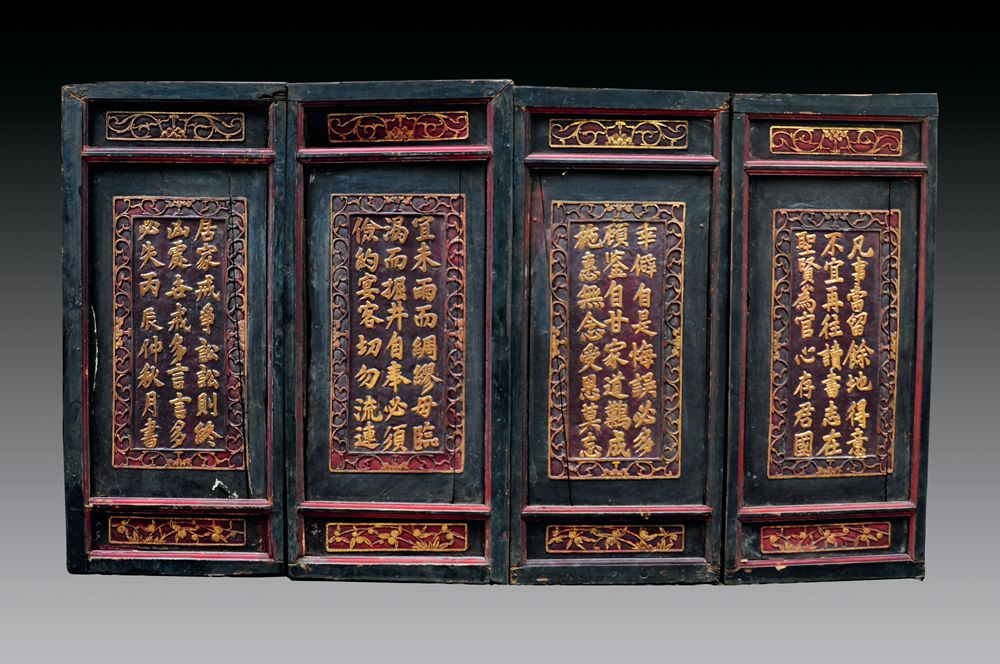 凡事當留餘地得意
不宜再往讀書志在
聖賢為官心存君國
乖僻自是悔誤必多
自甘家道難成
施惠無念受恩莫忘
宜未雨而綢繆毋臨
渴而掘井自奉必須
儉約宴客切勿流連
居家戒爭訟訟則終
凶處世戒多言言多
必失丙辰仲秋月書